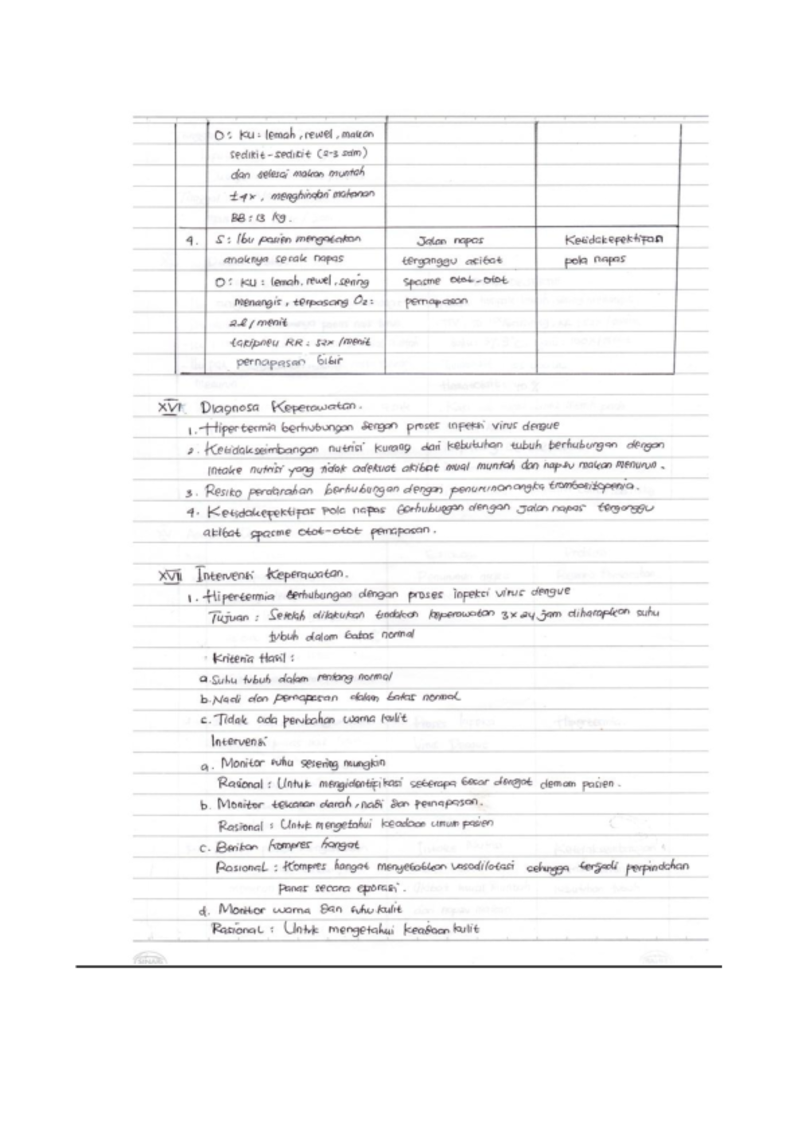 O : KU : lemah, rewel, makan
sedikit-sedikit (2-3 sdm)
dan selesai makan muntah
±4x, menghindari makanan
BB : 13 kg.
4. S : Ibu pasien mengatakan Jalan napas Ketidakefektifan
anaknya sesak napas terganggu akibat pola napas
O : KU : lemah, rewel, sering spasme otot-otot
menangis, terpasang O2 : pernapasan
2 l / menit
takipneu RR : 52x /menit
pernapasan bibir
XVI Diagnosa Keperawatan.
1. Hipertermia berhubungan dengan proses infeksi virus dengue
2. Ketidakseimbangan nutrisi kurang dari kebutuhan tubuh berhubungan dengan
intake nutrisi yang tidak adekuat akibat mual muntah dan napsu makan menurun.
3. Resiko perdarahan berhubungan dengan penurunan angka trombositopenia.
4. Ketidakefektifas pola napas berhubungan dengan jalan napas terganggu
akibat spasme otot-otot pernapasan.
XVII Intervensi Keperawatan.
1. Hipertermia berhubungan dengan proses infeksi virus dengue
Tujuan : Setelah dilakukan tindakan keperawatan 3x24 jam diharapkan suhu
tubuh dalam batas normal
Kriteria Hasil :
a. Suhu tubuh dalam rentang normal
b. Nadi dan pernapasan dalam batas normal
c. Tidak ada perubahan warna kulit
Intervensi
a. Monitor suhu sesering mungkin
Rasional : Untuk mengidentifikasi seberapa besar derajat demam pasien.
b. Monitor tekanan darah, nadi dan pernapasan.
Rasional : Untuk mengetahui keadaan umum pasien
c. Berikan kompres hangat
Rasional : Kompres hangat menyebabkan vasodilatasi sehingga terjadi perpindahan
panas secara eporasi.
d. Monitor warna dan suhu kulit
Rasional : Untuk mengetahui keadaan kulit